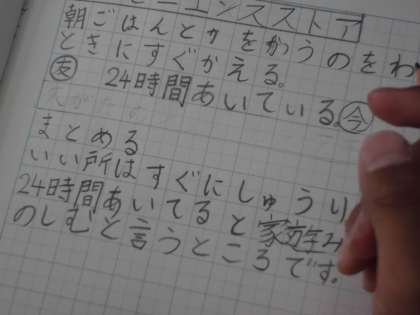 ンビニエンスストア
朝ごはんとかをかうのをわ
ときにすぐかえる。
友 24時間あいている。今
まとめる
いい所はすぐにしゅうり
24時間あいてると家族み
のしむと言うところです。